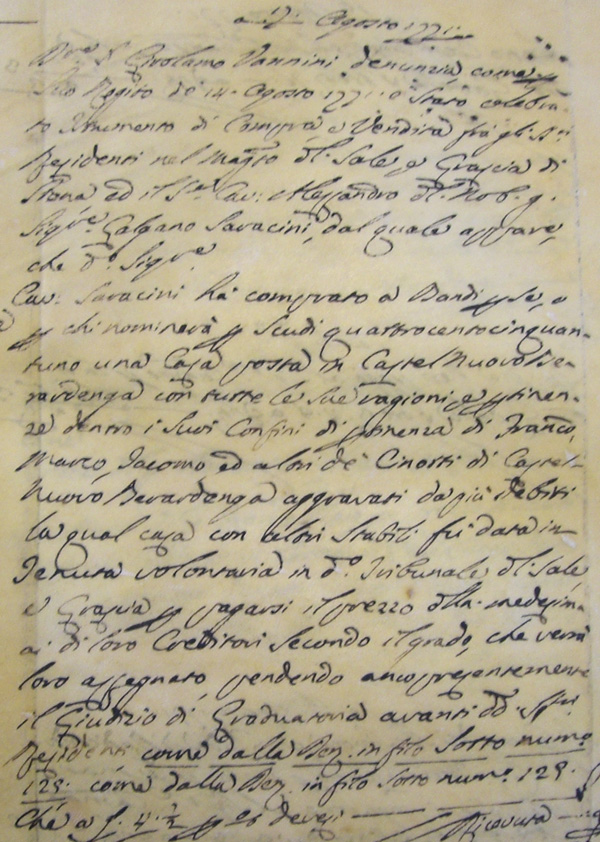 a 17: Agosto 1771:
Girolamo Vannini denunzia come p
Suo Rogito de 14. Agosto 1771: è stato celebra-
to Istrumento di Compra e Vendita frà gli SSri
Residenti nel Magto. dl. Sale, e Grascia di
Siena ed il Sre. Cav: Alessandro dl. Nob. q.
Sigre. Galgano Saracini, dal quale appare,
che do. Sigre.
Cav: Saracini hà comprato a Bandi p se, o
p chi nominerà p Scudi quattrocentocinquan-
tuno una Casa posta in CastelNuovo Be-
rardenga con tutte le sue ragioni, e ptinen-
ze dentro i Suoi Confini di ptinenza di Franco.
Marco, Jacomo ed altri de' Cinotti di Castel-
Nuovo Berardenga aggravati da più debiti
la qual casa con altri Stabili fù data in
Tenuta volontaria in do. Tribunale dl. Sale
e Grascia p pagarsi il prezzo dlla. medesima
ai di loro Creditori secondo il grado, che verrà
loro assegnato, pendendo anco presentemente
il Giudizio di Graduatoria avanti dd. SSri.
Residenti come dalla Den. in filo Sotto numo.
129. come dalla Den. in filo Sotto numo. 129.
Che a £. 4. ½ p Co devesi — Ricevuta